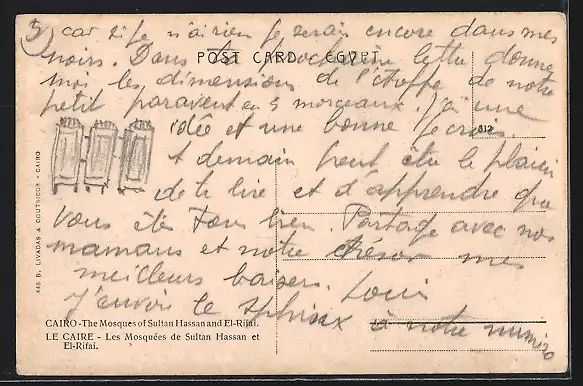 5 car si je n'ai rien je serais encore dans mes
noirs. Dans la prochaine lettre donne
POST CARD EGYPT
moi les dimensions de l'étoffe de notre
petit paravent en 3 morceaux. J'ai une
idée et une bonne je crois.
812
A demain peut être le plaisir
de te lire et d'apprendre que
vous êtes tous bien. Partage avec nos
mamans et notre trésor mes
meilleurs baisers. Louis
J'envoie le sphinx à notre mimiro
448 B. LIVADAS & COUTSICOS - CAIRO
CAIRO - The Mosques of Sultan Hassan and El-Rifai.
LE CAIRE - Les Mosquées de Sultan Hassan et
El-Rifai.